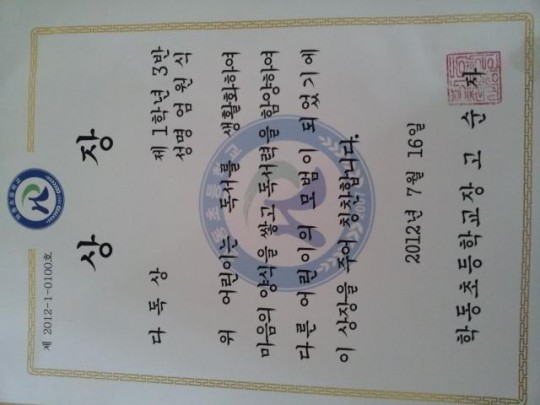 제 2012-1-0100호
상 장
다 독 상
제 1학년 3반
성명 엄 원 식
위 어린이는 독서를 생활화하여
마음의 양식을 쌓고 독서력을 함양하여
다른 어린이의 모범이 되었기에
이 상장을 주어 칭찬합니다.
2012년 7월 16일
학동초등학교장 고 순 자